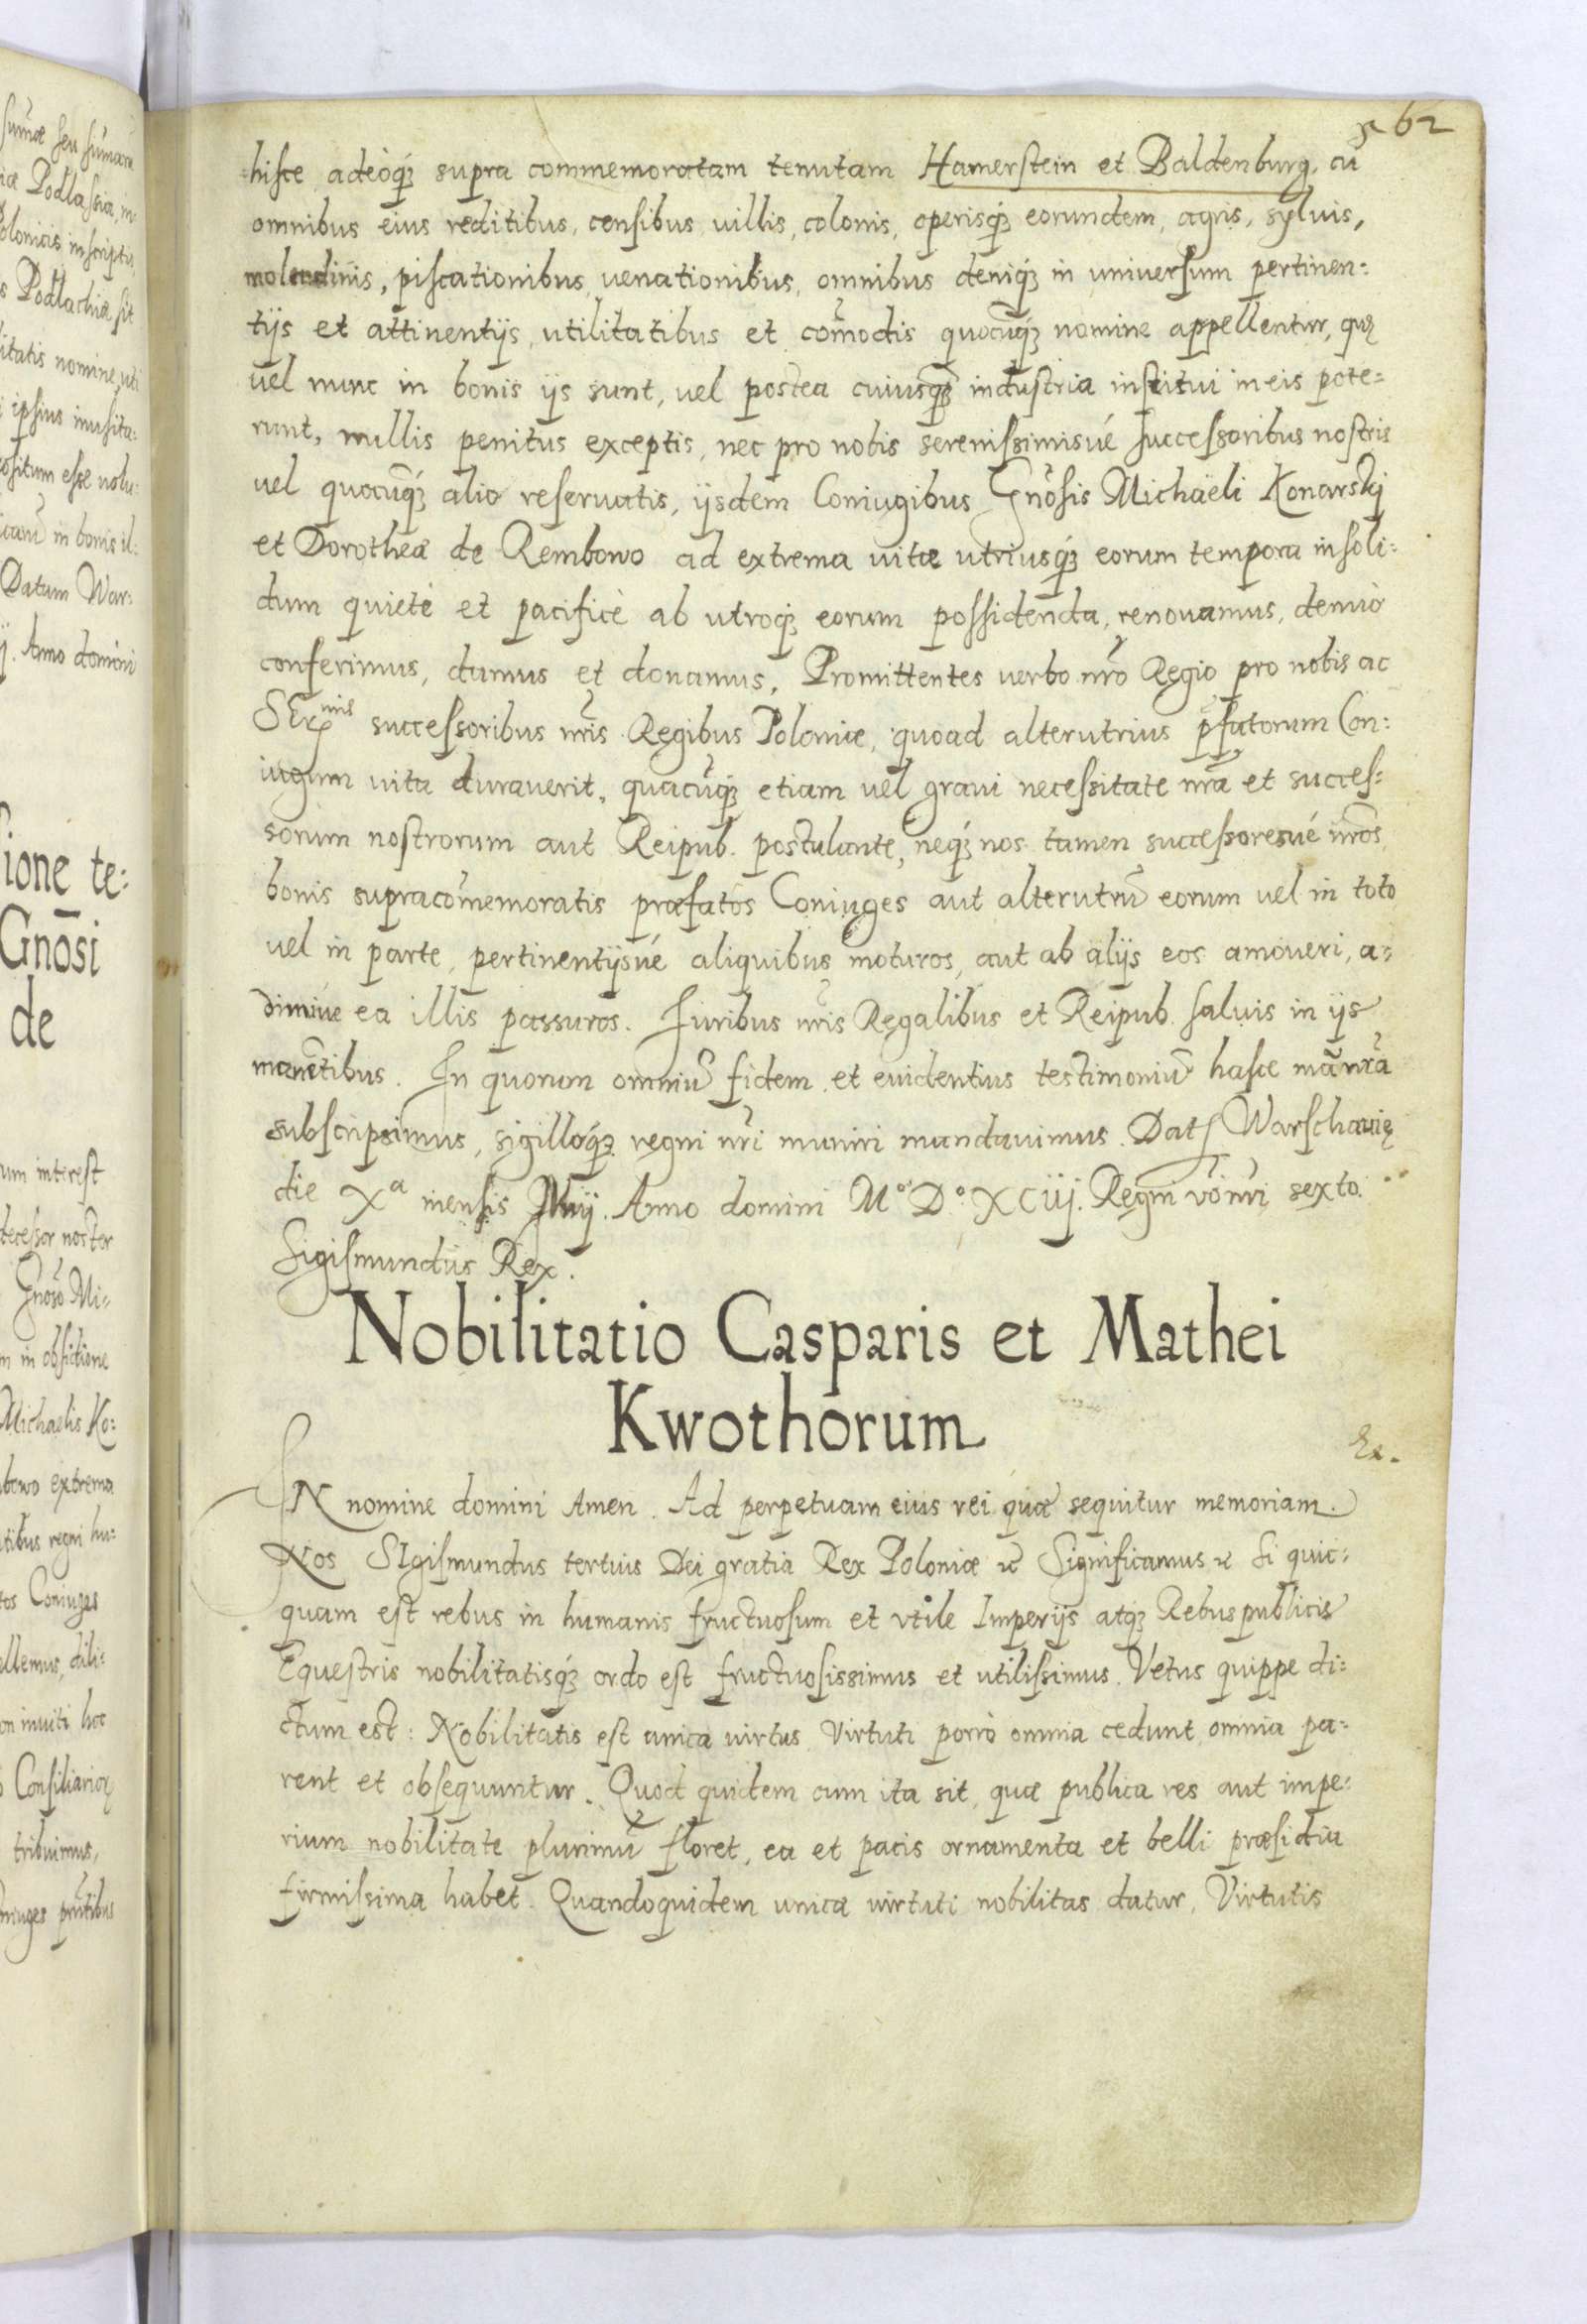 562
hisce adeòq́ꝫ supra commemoratam tenutam Hamerstein et Baldenburg, cũ
omnibus eius reditibus, censibus, villis, colonis, operisq́ꝫ eorundem, agris, sylvis,
molendinis, piscationibus, uenationibus, omnibus deniq́ꝫ in universum pertinen:
tijs et attinentijs, utilitatibus et com̃odis quocũq́ꝫ nomine appellentur, quę
vel nunc in bonis ijs sunt, vel postea cuiusq̃ꝫ industria institui in eis pote:
runt, nullis penitus exceptis, nec pro nobis serenissimisué successoribus nostris
vel quocũq́ꝫ alio reservatis, ijsdem Coniugibus Gnõsis Michaëli Konarskj
et Dorotheæ de Rembowo ad extrema vitæ utriusq́ꝫ eorum tempora insoli:
dum quietè et pacificè ab utroq́ꝫ eorum possidenda, renouamus, denuò
conferimus, damus et donamus. Promittentes verbo nr̃o Regio pro nobis ac
SErmis successoribus nr̃is Regibus Poloniæ, quoad alterutrius p̃fatorum Con:
iugum vita duraverit, quacũq́ꝫ etiam vel gravi necessitate nr̃a et succes:
sorum nostrorum aut Reipub. postulante, neq́ꝫ nos tamen successoresué nr̃os,
bonis supracom̃emoratis præfatos Coniuges aut alterutrũ eorum vel in toto
vel in parte, pertinentijsué aliquibus moturos, aut ab alijs eos amoueri, a:
dimiue ea illis passuros. Iuribus nr̃is Regalibus et Reipub. salvis in ijs
manẽtibus. In quorum omniũ fidem et euidentius testimoniũ hasce mãnr̃a
subscripsimus, sigilloq́ꝫ regni nr̃i muniri mandauimus. Dat Warschauię
die Xa mensis Maij. Anno domini Mo Do XCiij. Regni vo nr̃i sexto.
Sigismundus Rex.
Nobilitatio Casparis et Mathei
Kwothorum
Ex.
IN nomine domini Amen. Ad perpetuam eius rei quæ sequitur memoriam.
Nos SIgismundus tertius Dei gratia Rex Poloniæ ꝛc Significamus ꝛc Si quic:
quam est rebus in humanis fructuosum et vtile Imperijs atqꝫ Rebuspublicis
Equestris nobilitatisq́ꝫ ordo est fructuosissimus et utilissimus. Vetus quippe di:
ctum est: Nobilitatis est unica virtus. Virtuti porrò omnia cedunt, omnia pa:
rent et obsequuntur. Quod quidem cum ita sit, quæ publica res aut impe:
rium nobilitate plurimũ floret, ea et pacis ornamenta et belli præsidia
firmissima habet. Quandoquidem unicæ virtuti nobilitas datur, Virtutis